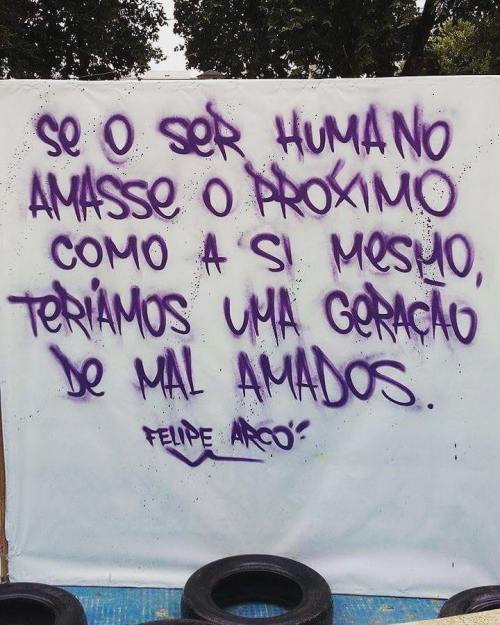 Se O SeR HUMANO
AMASSE O PRÓXIMO
COMO A SI MESMO,
TERÍAMOS UMA GERAÇÃO
DE MAL AMADOS.
FELIPE ARCO